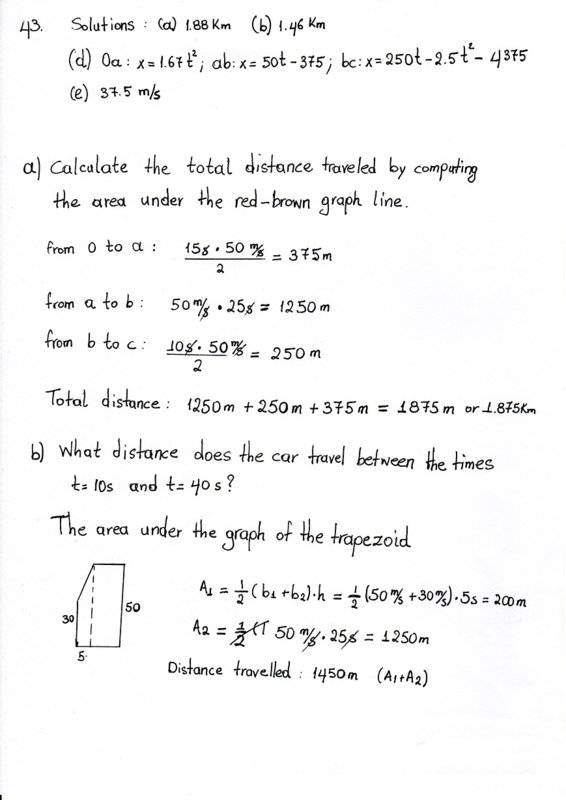 43. Solutions : (a) 1.88 Km (b) 1.46 Km
(d) Oa : x = 1.67t²; ab: x = 50t - 375; bc: x = 250t - 2.5t² - 4375
(e) 37.5 m/s
a) Calculate the total distance traveled by computing
the area under the red-brown graph line.
from 0 to a : 15s · 50 m/s / 2 = 375m
from a to b : 50 m/s · 25s = 1250m
from b to c : 10s · 50 m/s / 2 = 250 m
Total distance : 1250m + 250m + 375m = 1875m or 1.875Km
b) What distance does the car travel between the times
t= 10s and t= 40s?
The area under the graph of the trapezoid
30 50
5
A1 = 1/2 (b1 + b2)·h = 1/2 (50 m/s + 30 m/s)·5s = 200m
A2 = 50 m/s · 25s = 1250m
Distance travelled : 1450m (A1+A2)